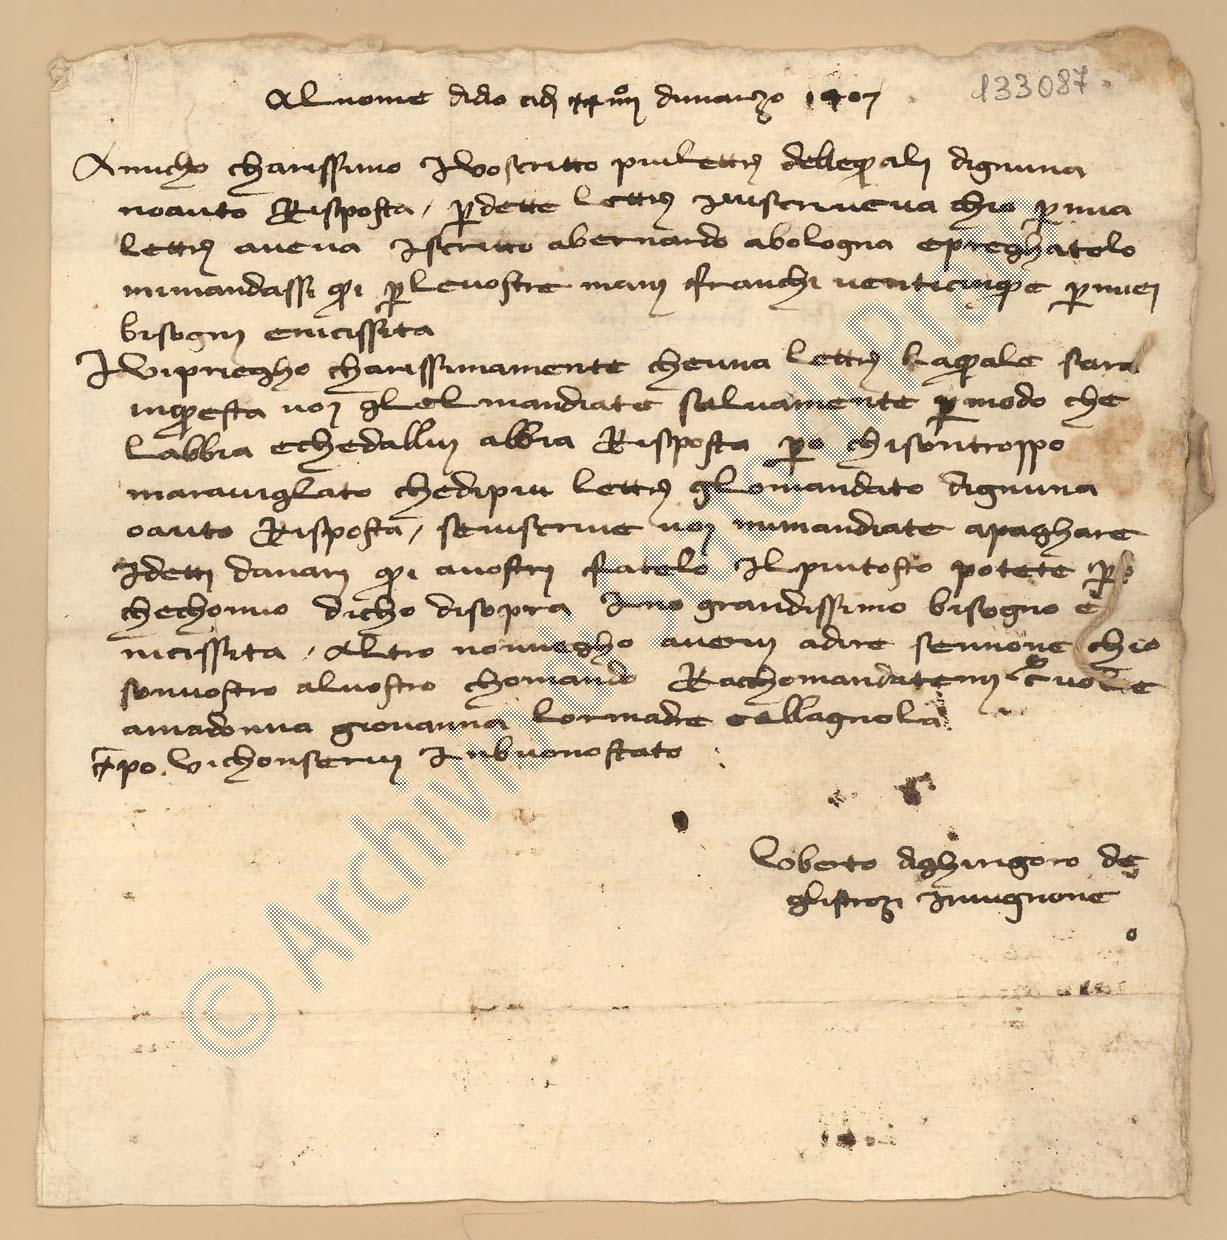 133087
Al nome di dio adi xxiiii di marzo 1407
Amicho charissimo io vo scritto piu lettere delle quali di gniuna
no auto Risposta / per dette lettere vi iscriveva ch io per mia
lettera aveva iscritto a bernardo a bologna e preghatolo
mi mandassi qui per le vostre mani franchi venticinque per miei
bisogni e nicissita
Io vi priegho charissimamente che una lettera la quale sara
in questa voi gle l mandiate salvamente per modo che
l abbia e che da llui abbia Risposta pero ch i son troppo
maraviglato che di piu lettere gl o mandato di gniuna
o auto Risposta / se vi scrive voi mi mandiate a paghare
i detti danari qui a vostri fratelo il piu tosto potete pero
che chomo dicho di sopra i n o grandissimo bisogno e
nicissita / altro non vegho avervi a dire se none ch io
son vostro al vostro chomando Rachomandatemi
a madonna giovanna lor madre e all agnola
xpo vi chonservi in buono stato
loberto di ghirigoro de
gli strozi in vignone
© Archivio di Stato di Prato